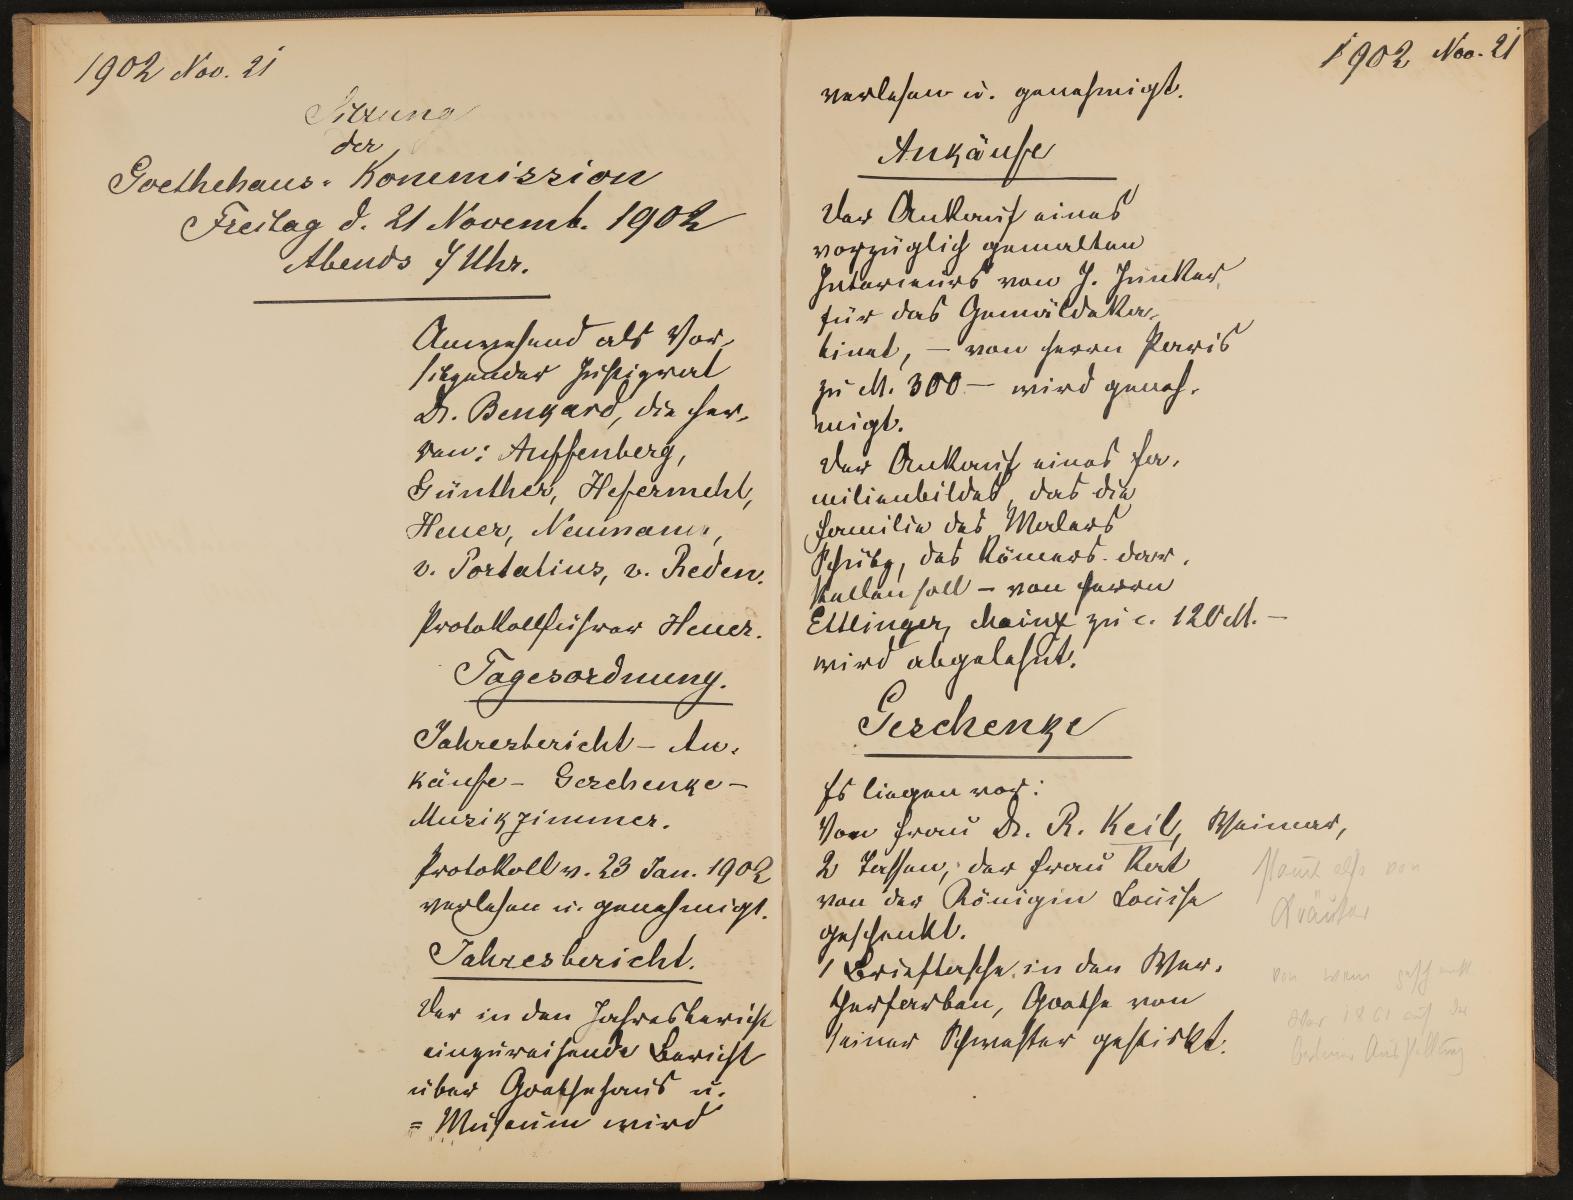 1902 Nov. 21
Sitzung
der
Goethehaus-Kommission
Freitag d. 21 Novemb. 1902
Abends 7 Uhr.
Anwesend als Vor-
sitzender Justizrat
Dr. Benkard, die Her-
ren: Auffenberg,
Günther, Hefermehl,
Heuer, Neumann,
v. Portatius, v. Reden.
Protokollführer Heuer.
Tagesordnung.
Jahresbericht – An-
käufe – Geschenke –
Musikzimmer.
Protokoll v. 23 Jan. 1902
verlesen u. genehmigt.
Jahresbericht.
Der in den Jahresbericht
einzureihende Bericht
über Goethehaus u.
= Museum wird
1902 Nov. 21
verlesen u. genehmigt.
Ankäufe
Der Ankauf eines
vorzüglich gemalten
Interieurs von J. Junker,
für das Gemäldeka-
binet, – von Herrn Paris
zu M. 300 – wird geneh-
migt.
Der Ankauf eines Fa-
milienbildes, das die
Familie des Malers
Schütz, des Römers dar-
stellen soll – von Herrn
Ettlinger, Mainz zu c. 120 M. –
wird abgelehnt.
Geschenke
Es liegen vor:
Von Frau Dr. R. Keil, Weimar,
2 Tassen, der Frau Rat
von der Königin Louise
geschenkt.
1 Brieftasche in den Wer-
therfarben, Goethe von
seiner Schwester gestickt.
stamt also von
Kräuter
von wem geschenkt
War 1861 auf der
Berliner Ausstellung